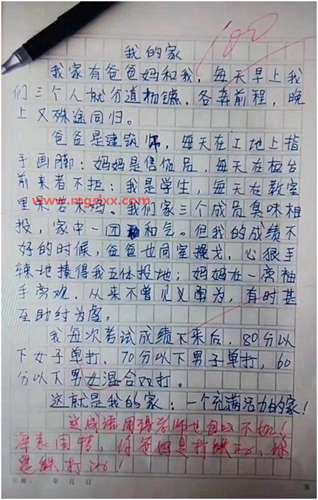 我的家
我家有爸爸妈和我，每天早上我
们三个人就分道扬镳，各奔前程，晚
上又殊途同归。
爸爸是建筑师，每天在工地上指
手画脚；妈妈是售货员，每天在柜台
前来者不拒；我是学生，每天在教室
里呆若木鸡。我们家三个成员臭味相
www.mgsxx.com
投，家中一团和气。但我的成绩不
好的时候，爸爸也同室操戈，心狠手
辣地揍得我五体投地；妈妈在一旁袖
手旁观，从来不曾见义勇为，有时甚
至助纣为虐。
我每次考试成绩下来后，80分以
下女子单打，70分以下男子单打，60
分以下男女混合双打。
这就是我的家：一个充满活力的家！
这成语用得
深表同情，